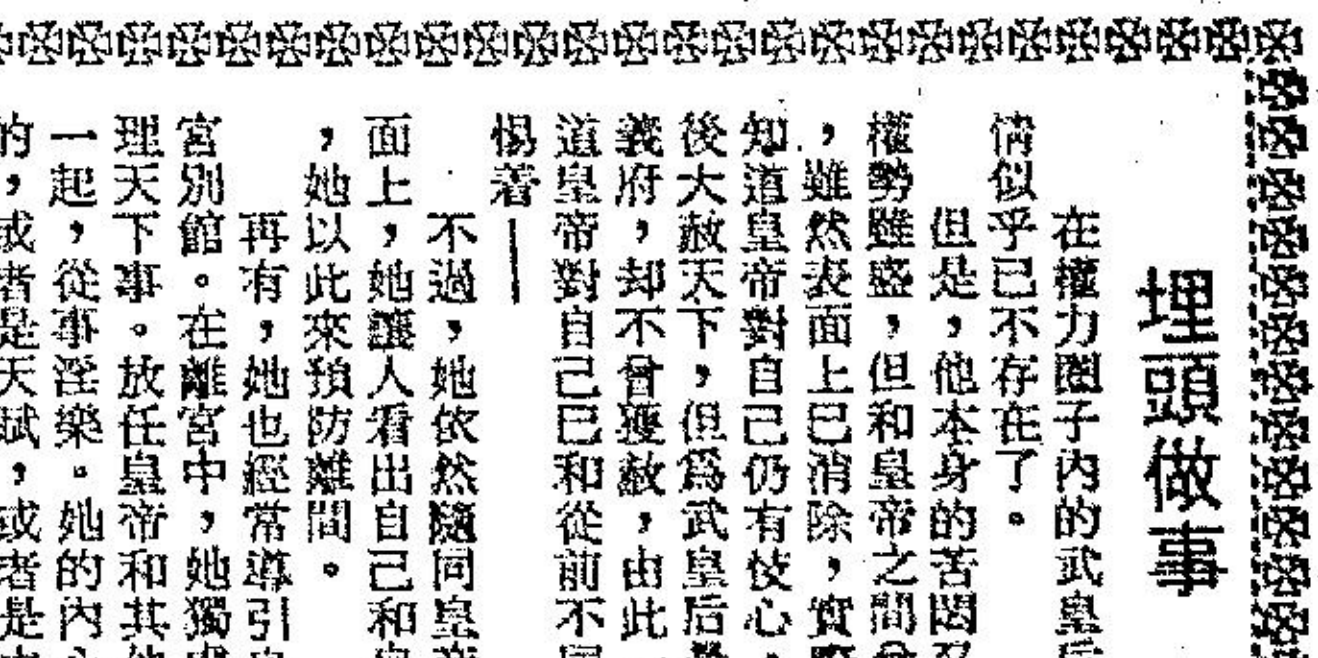 埋頭做事
在權力圈子內的武皇
情似乎已不存在了。
但是,他本身的苦悶
權勢雖盛,但和皇帝之間
,雖然表面上已消除,實
知道皇帝對自己仍有忮心,
後大赦天下,但爲武皇后
義府,却不曾獲赦,由此
道皇帝對自己已和從前不
惕着——
不過,她依然隨同皇
面上,她讓人看出自己和
,她以此來預防離間。
再有,她也經常導引
宮別館。在離宮中,她獨
理天下事。放任皇帝和其
一起,從事淫樂。她的內
的,或者是天賦,或者是